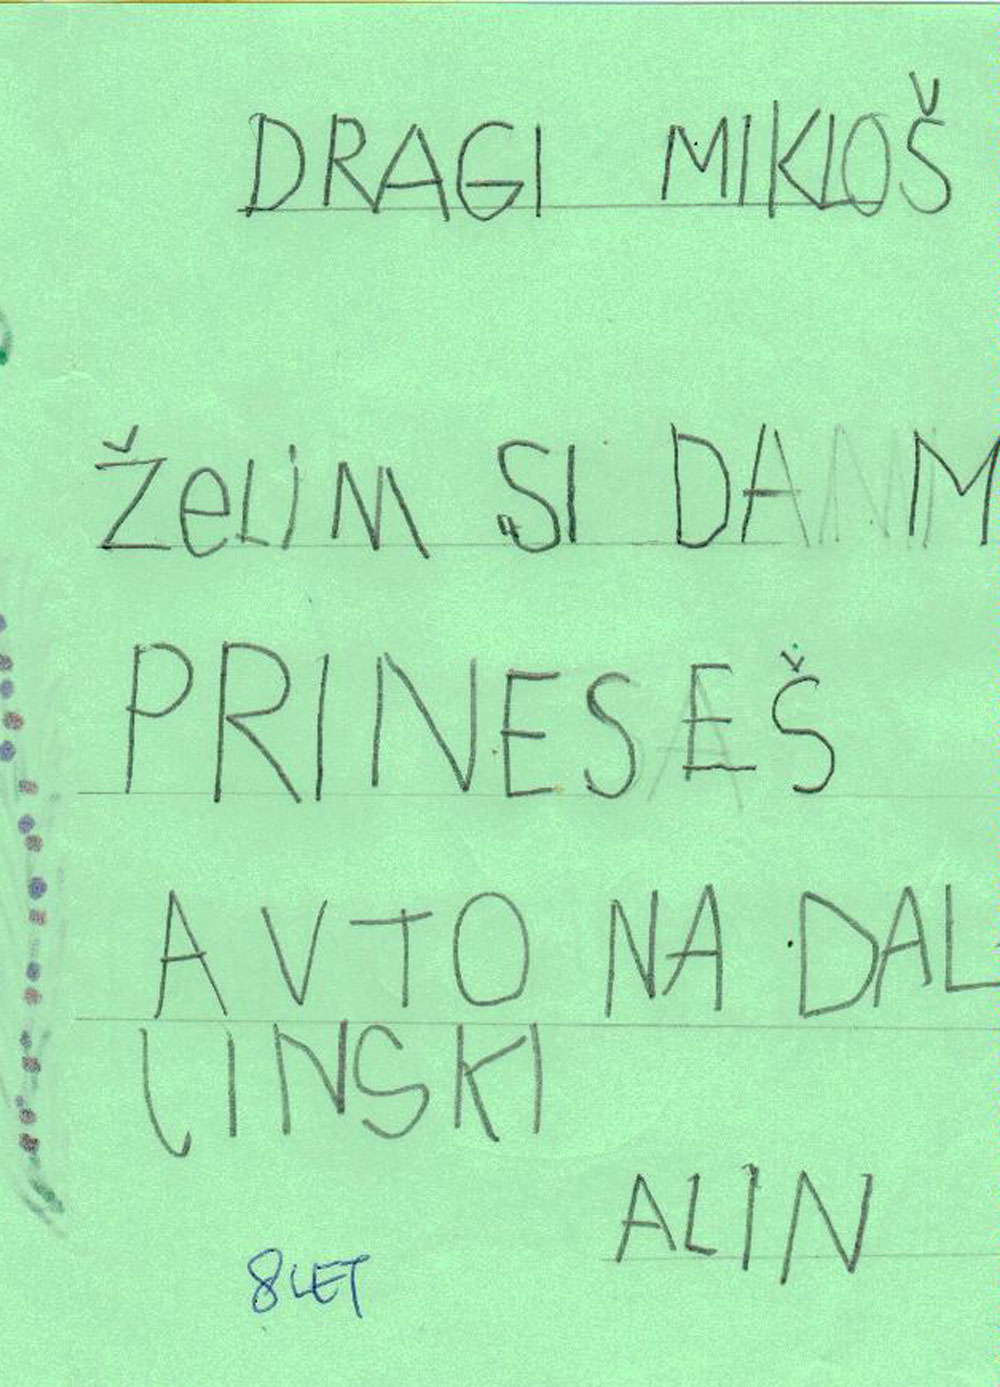 DRAGI MIKLOŠ
ŽeLiM SI DA M
PRINESEŠ
AVTO NA DAL
LINSKI
ALIN
8 LET